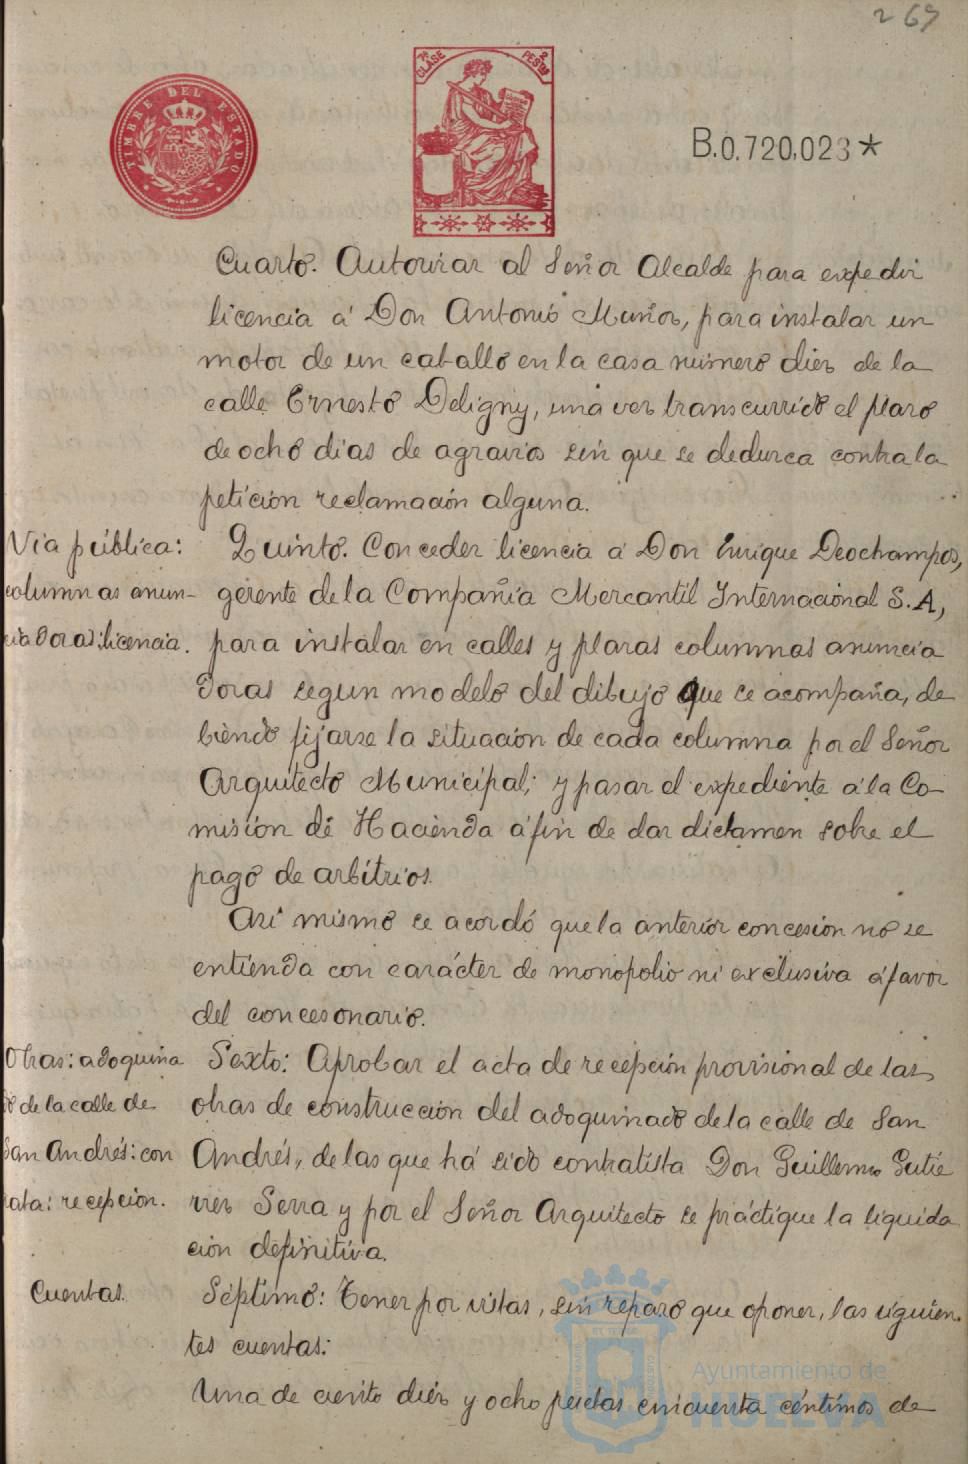 269
TIMBRE DEL ESTADO
7ª CLASE
2 PESTAS
B.0.720.023*
Cuarto. Autorizar al Señor Alcalde para expedir
licencia á Don Antonio Muñoz, para instalar un
motor de un caballo en la casa número diez de la
calle Ernesto Deligny, una vez transcurrido el plazo
de ocho dias de agravios sin que se deduzca contra la
petición reclamación alguna.
Via pública:
columnas anun-
ciadoras: licencia.
Quinto. Conceder licencia á Don Enrique Deochampos,
gerente de la Compañia Mercantil Internacional S.A,
para instalar en calles y plazas columnas anuncia
doras segun modelo del dibujo que se acompaña, de
biendo fijarse la situación de cada columna por el Señor
Arquitecto Municipal; y pasar el expediente á la Co-
misión de Hacienda á fin de dar dictamen sobre el
pago de arbitrios.
Asi mismo se acordó que la anterior concesión no se
entienda con carácter de monopolio ni exclusiva á favor
del concesonario.
Obras: adoquina
do de la calle de
San Andrés: con
trata: recepción.
Sexto: Aprobar el acta de recepción provisional de las
obras de construcción del adoquinado de la calle de San
Andrés, de las que há sido contratista Don Guillermo Gutie
rrez Serra y por el Señor Arquitecto se práctique la liquida
ción definitiva.
Cuentas.
Séptimo: Tener por vistas, sin reparo que oponer, las siguien-
tes cuentas:
Una de ciento diez y ocho pesetas cincuenta céntimos de
Ayuntamiento de
HUELVA